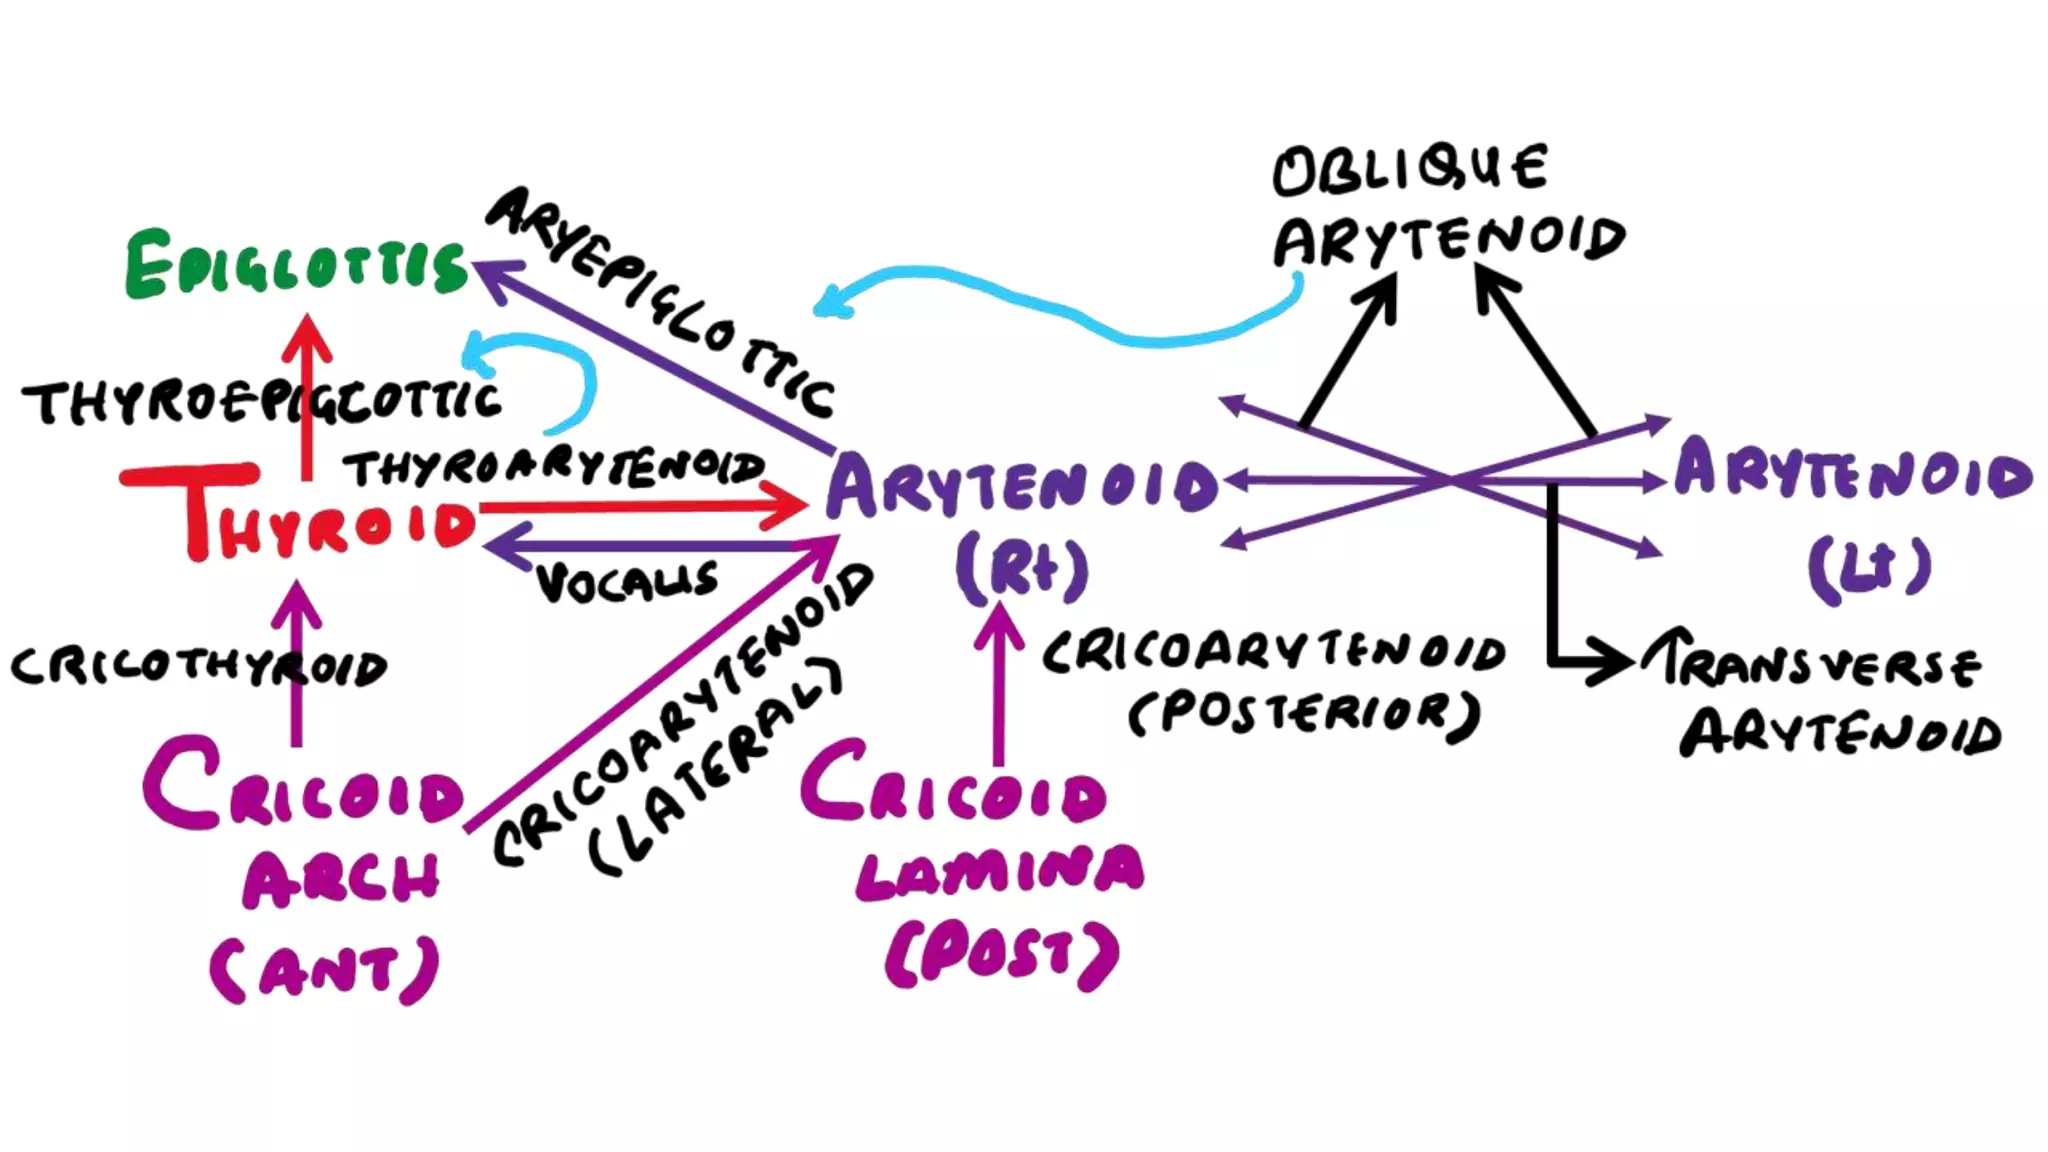 OBLIQUE
ARYTENOID
ARYEPIGLOTTIC
EPIGLOTTIS
THYROEPIGLOTTIC
THYROARYTENOID
THYROID
ARYTENOID
(Rt)
ARYTENOID
(Lt)
VOCALIS
CRICOTHYROID
CRICOARYTENOID
(LATERAL)
CRICOARYTENOID
(POSTERIOR)
TRANSVERSE
ARYTENOID
CRICOID
ARCH
(ANT)
CRICOID
LAMINA
(POST)